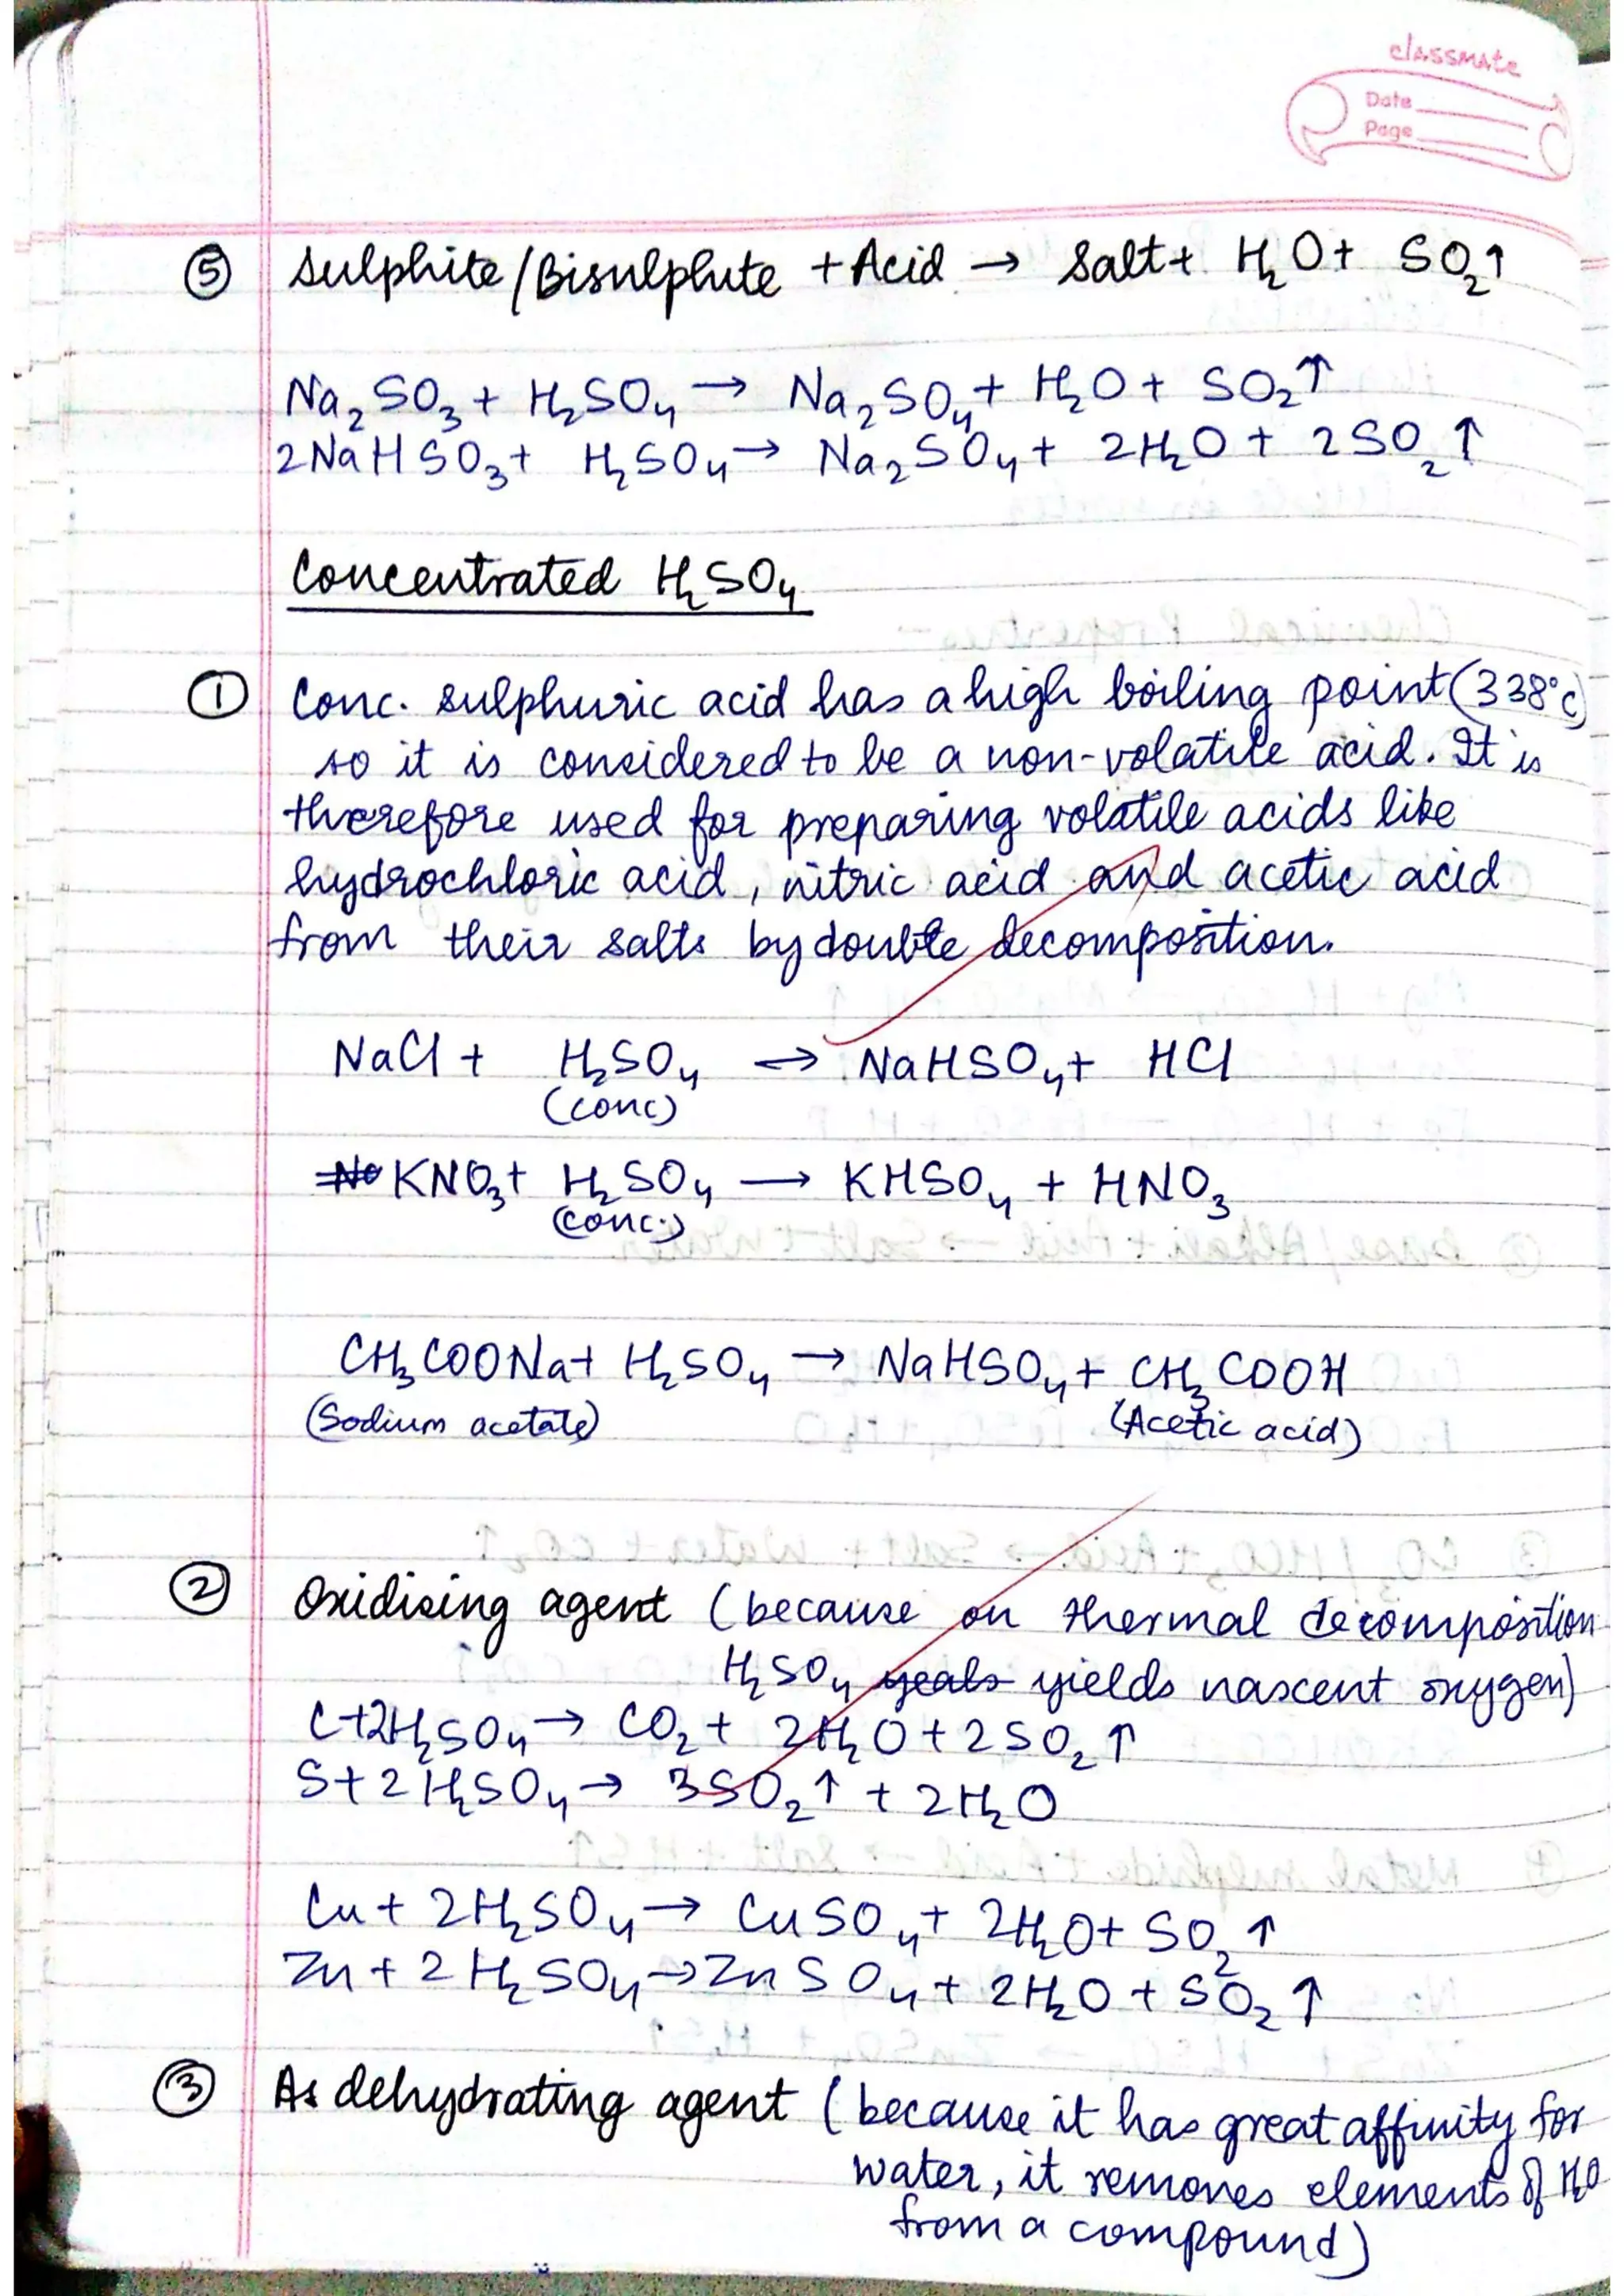 classmate
Date
Page
⑤ Sulphite/Bisulphite + Acid → Salt + H₂O + SO₂↑
Na₂SO₃ + H₂SO₄ → Na₂SO₄ + H₂O + SO₂↑
2NaHSO₃ + H₂SO₄ → Na₂SO₄ + 2H₂O + 2SO₂↑
Concentrated H₂SO₄
① Conc. sulphuric acid has a high boiling point (338°c)
so it is considered to be a non-volatile acid. It is
therefore used for preparing volatile acids like
hydrochloric acid, nitric acid and acetic acid
from their salts by double decomposition.
NaCl + H₂SO₄ → NaHSO₄ + HCl
(conc)
KNO₃ + H₂SO₄ → KHSO₄ + HNO₃
(conc.)
CH₃COONa + H₂SO₄ → NaHSO₄ + CH₃COOH
(Sodium acetate) (Acetic acid)
② Oxidising agent (because on thermal decomposition
H₂SO₄ yeals yields nascent oxygen)
C + 2H₂SO₄ → CO₂ + 2H₂O + 2SO₂↑
S + 2H₂SO₄ → 3SO₂↑ + 2H₂O
Cu + 2H₂SO₄ → CuSO₄ + 2H₂O + SO₂↑
Zn + 2H₂SO₄ → ZnSO₄ + 2H₂O + SO₂↑
③ As dehydrating agent (because it has great affinity for
water, it removes elements of H₂O
from a compound)